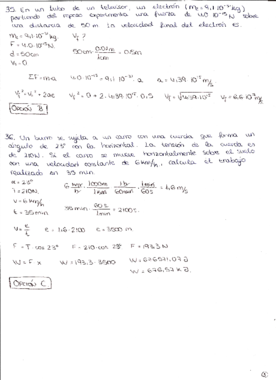 35. En un tubo de un televisor, un electrón (me = 9,1·10⁻³¹ kg)
partiendo del reposo experimenta una fuerza de 4.0·10⁻¹³ N sobre
una distancia de 50 m la velocidad final del electrón es
m = 9,1·10⁻³¹ kg Vf ?
F = 4.0·10⁻¹³ N
d = 50cm 50cm 0.01m/1cm = 0.5m
V₀ = 0
ΣF = m·a 4.0·10⁻¹³ = 9,1·10⁻³¹ a a = 4.39·10¹⁷ m/s
Vf² - Vi² = 2ae Vf² = 0 + 2·4.39·10¹⁷·0.5 Vf = √4.39·10¹⁷ Vf = 6.6·10⁸ m/s
OPCIÓN B
36. Un burro se sujeta a un carro con una cuerda que forma un
ángulo de 23° con la horizontal. La tensión de la cuerda es
de 210N. Si el carro se mueve horizontalmente sobre el suelo
con una velocidad constante de 6 km/h, calcula el trabajo
realizado en 35 min.
α = 23°
T = 210N
V = 6 km/h
t = 35min
6 km/h 1000m/1km 1h/60min 1min/60s = 1,6 m/s
35 min · 60s/1min = 2100s.
v = e/t e = 1.6·2100 e = 3500 m
F = T cos 23° F = 210·cos 23° F = 193.3 N
W = F x W = 193.3·3500 W = 676571.07 J
W = 676,57 KJ
OPCIÓN C